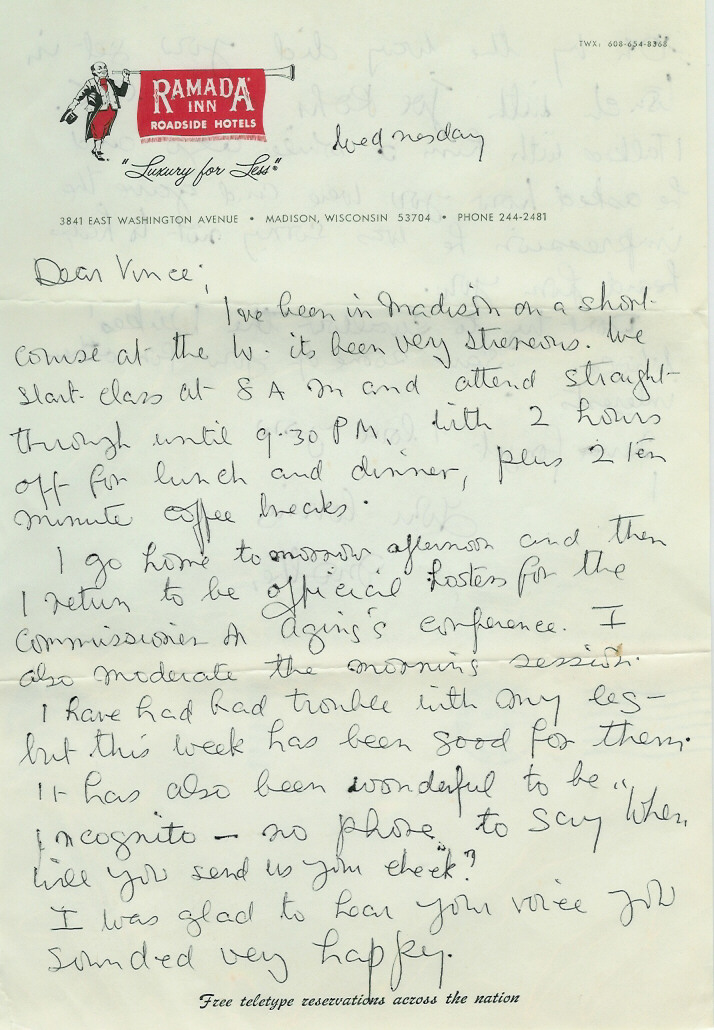 TWX: 608-654-8368
RAMADA
INN
ROADSIDE HOTELS
"Luxury for Less"®
Wednesday
3841 EAST WASHINGTON AVENUE • MADISON, WISCONSIN 53704 • PHONE 244-2481
Dear Vince;
I've been in Madison on a short
course at the W. its been very streneous. We
start class at 8 AM and attend straight
through until 9.30 PM. with 2 hours
off for lunch and dinner, plus 2 ten
minute coffee breaks.
I go home tomorrow afternoon and then
I return to be official hostess for the
Commissioner on Aging's conference. I
also moderate the morning session.
I have had bad trouble with my leg—
but this week has been good for them.
It has also been wonderful to be
incognito — no phone to say "When
will you send us your check"?
I was glad to hear your voice you
sounded very happy.
Free teletype reservations across the nation